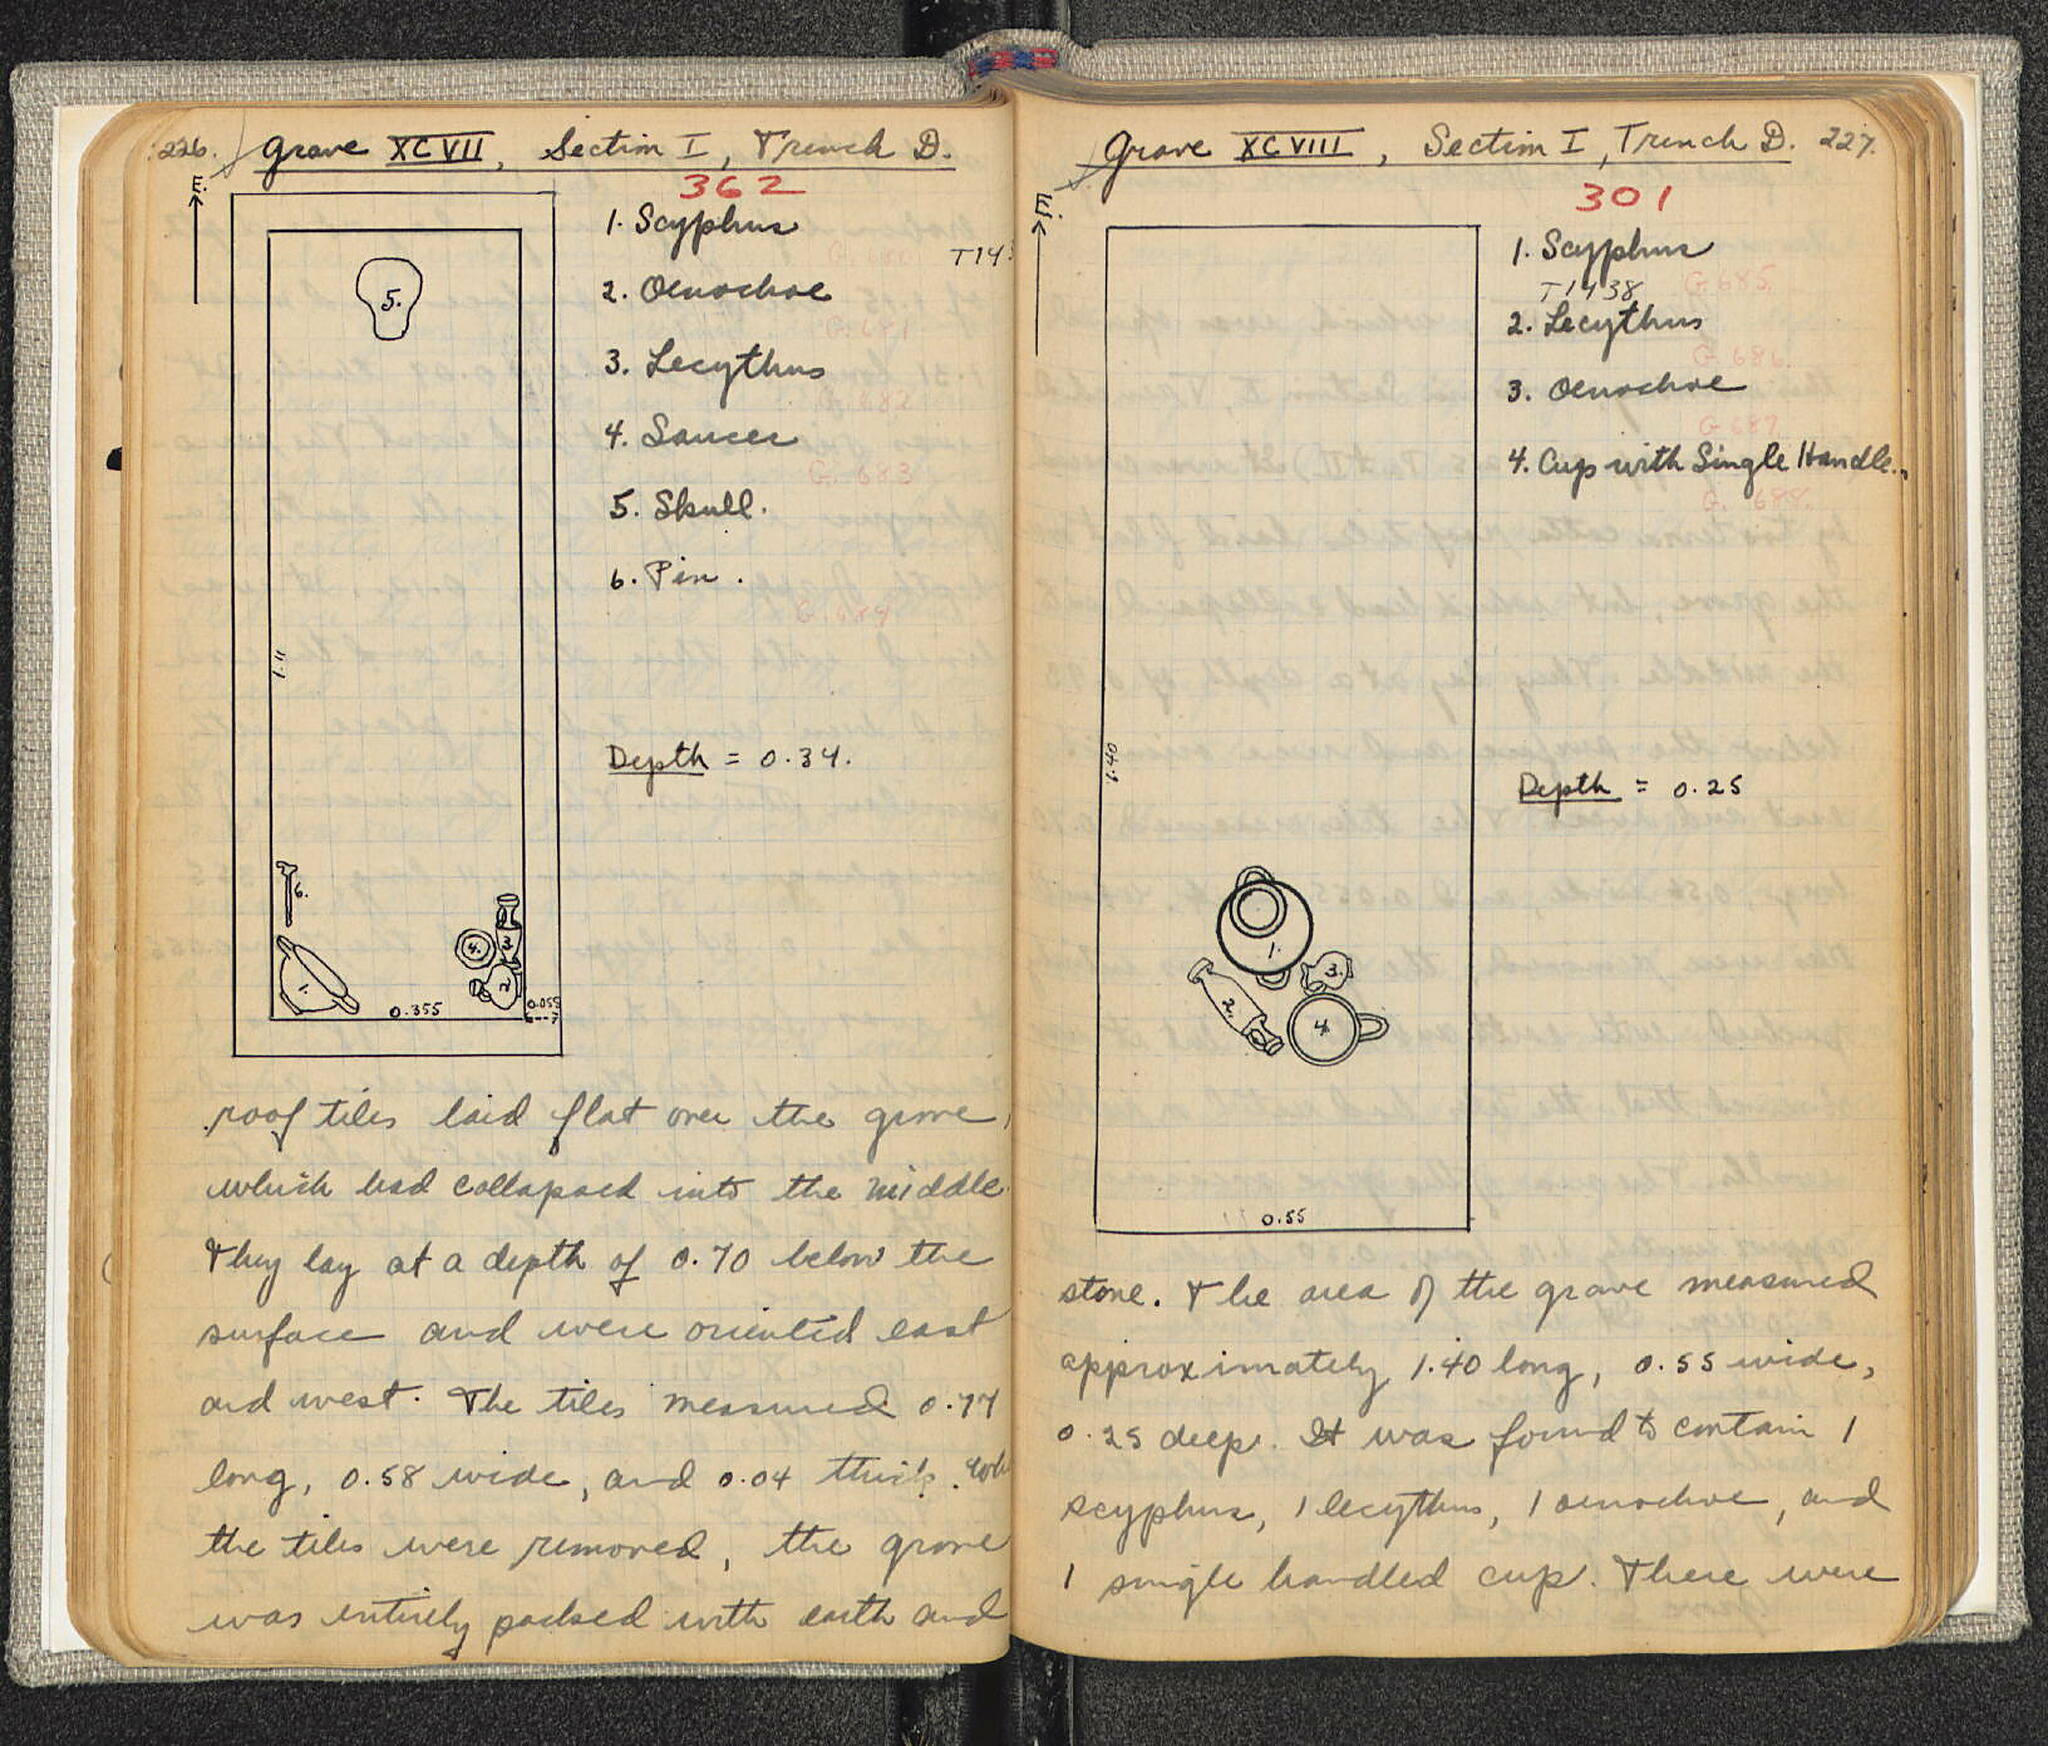 226. Grave XCVII, Section I, Trench D.
362
E.
1. Scyphus
G. 680
T143
2. Oenochoe
G. 681
3. Lecythus
G. 682
4. Saucer
G. 683
5. Skull.
6. Pin.
G. 684
5.
1.11
Depth = 0.34.
6.
4.
3
1.
2
0.355
0.055
roof tiles laid flat over the grave,
which had collapsed into the middle.
They lay at a depth of 0.70 below the
surface and were oriented east
and west. The tiles measured 0.77
long, 0.58 wide, and 0.04 thick.
the tiles were removed, the grave
was entirely packed with earth and
Grave XCVIII, Section I, Trench D. 227.
301
E.
1. Scyphus
T1438 G. 685.
2. Lecythus
G. 686.
3. Oenochoe
G. 687
4. Cup with Single Handle.
G. 688.
1.40
Depth = 0.25
1.
3.
2.
4.
0.55
stone. The area of the grave measured
approximately 1.40 long, 0.55 wide,
0.25 deep. It was found to contain 1
scyphus, 1 lecythus, 1 oenochoe, and
1 single handled cup. There were